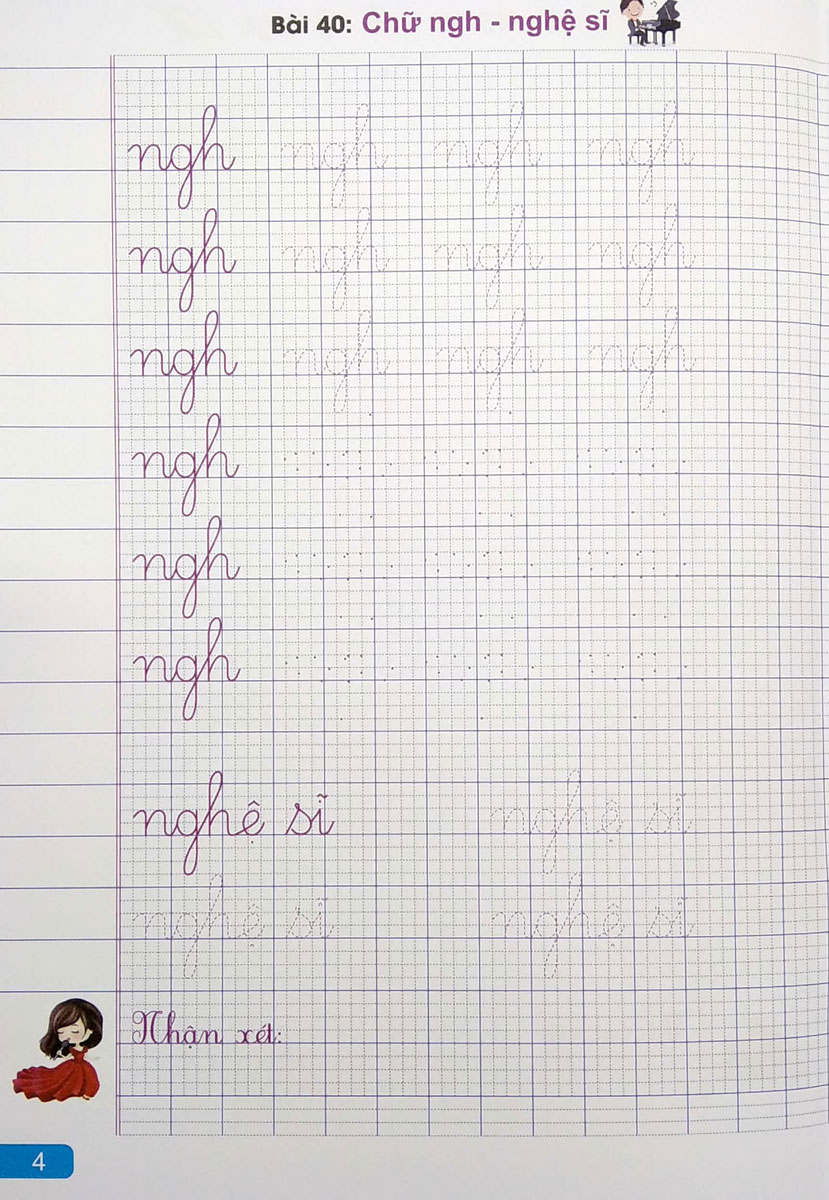 Bài 40: Chữ ngh - nghệ sĩ
ngh ngh ngh ngh
ngh ngh ngh ngh
ngh ngh ngh ngh
ngh
ngh
ngh
nghệ sĩ nghệ sĩ
nghệ sĩ nghệ sĩ
Nhận xét:
4